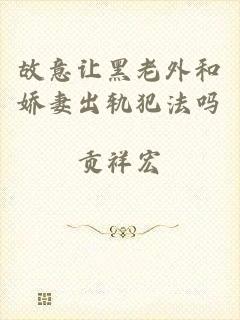 故意让黑老外和
娇妻出轨犯法吗
贡祥宏